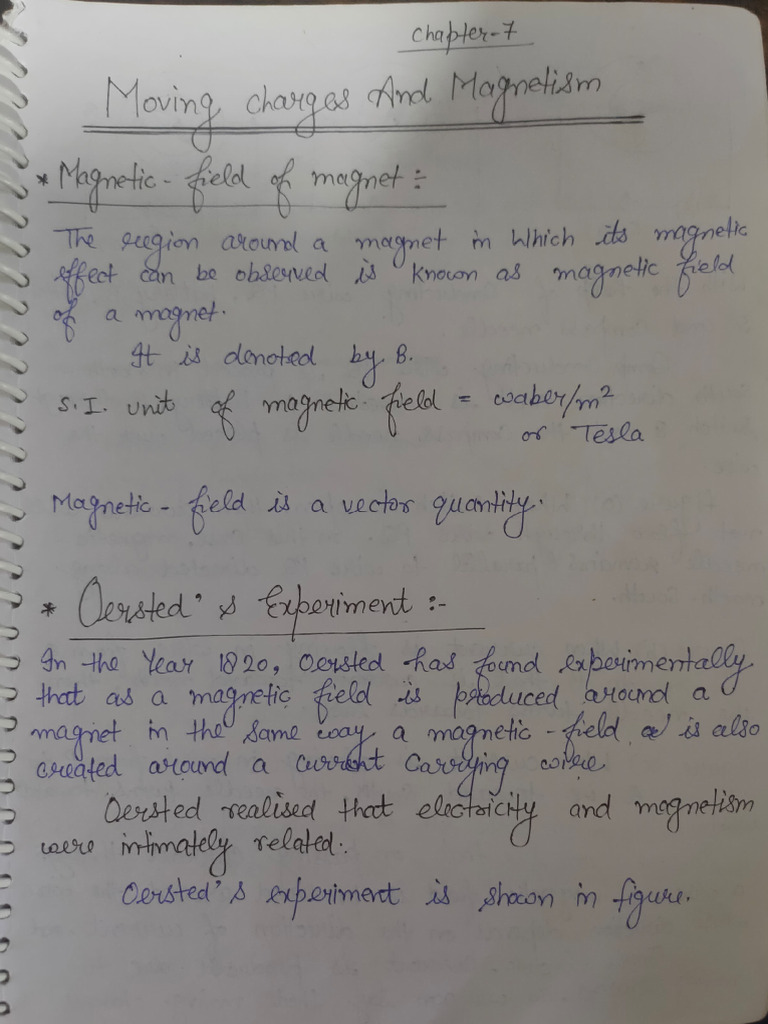 Chapter-7
Moving Charges And Magnetism
* Magnetic-field of magnet :-
The region around a magnet in which its magnetic
effect can be observed is known as magnetic field
of a magnet.
It is denoted by B.
S.I. unit of magnetic field = waber/m²
or Tesla
Magnetic-field is a vector quantity.
* Oersted's Experiment :-
In the Year 1820, Oersted has found experimentally
that as a magnetic field is produced around a
magnet in the same way a magnetic-field is also
created around a current carrying wire
Oersted realised that electricity and magnetism
were intimately related.
Oersted's experiment is shown in figure.